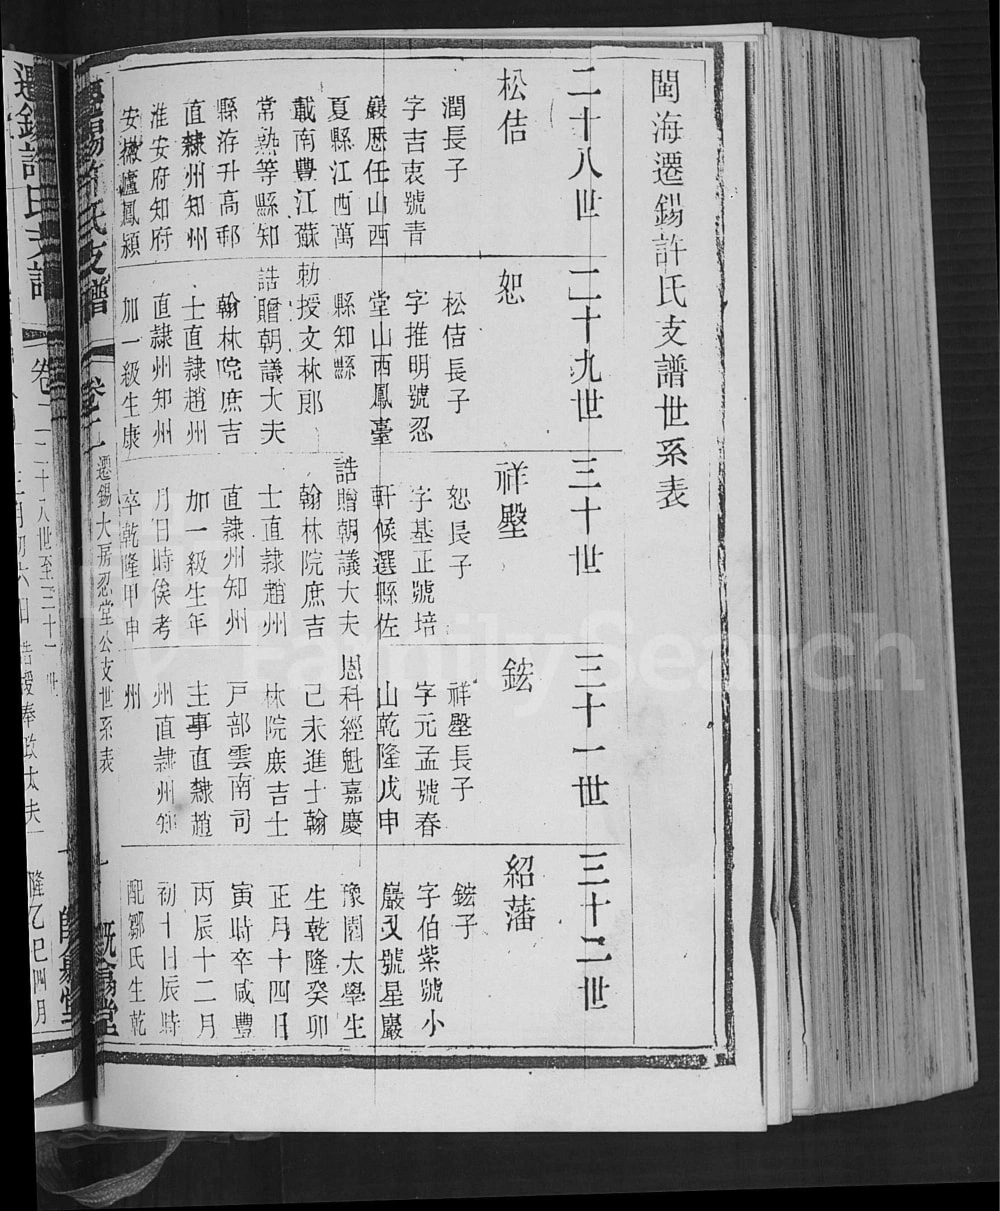 閩海遷錫許氏支譜世系表
二十八世
松佶
潤長子
字吉衷號青
巖歷任山西
夏縣江西萬
載南豐江蘇
常熟等縣知
縣洊升高郵
直隸州知州
淮安府知府
安徽廬鳳潁
二十九世
恕
松佶長子
字推明號忍
堂山西鳳臺
縣知縣
勅授文林郎
誥贈朝議大夫
翰林院庶吉
士直隸趙州
直隸州知州
加一級生康
三十世
祥墅
恕長子
字基正號培
軒候選縣佐
誥贈朝議大夫
翰林院庶吉
士直隸趙州
直隸州知州
加一級生年
月日時俟考
卒乾隆甲申
三十一世
鋐
祥墅長子
字元孟號春
山乾隆戊申
恩科經魁嘉慶
己未進士翰
林院庶吉士
戶部雲南司
主事直隸趙
州直隸州知
州
三十二世
紹藩
鋐子
字伯紫號小
巖又號星巖
豫園太學生
生乾隆癸卯
正月十四日
寅時卒咸豐
丙辰十二月
初十日辰時
配鄒氏生乾
遷錫許氏支譜
卷二
遷錫大房忍堂公支世系表
一
遷錫許氏支譜
卷
二十八世至三十二世
三月初六日誥授奉政大夫
隆乙巳四月
FamilySearch